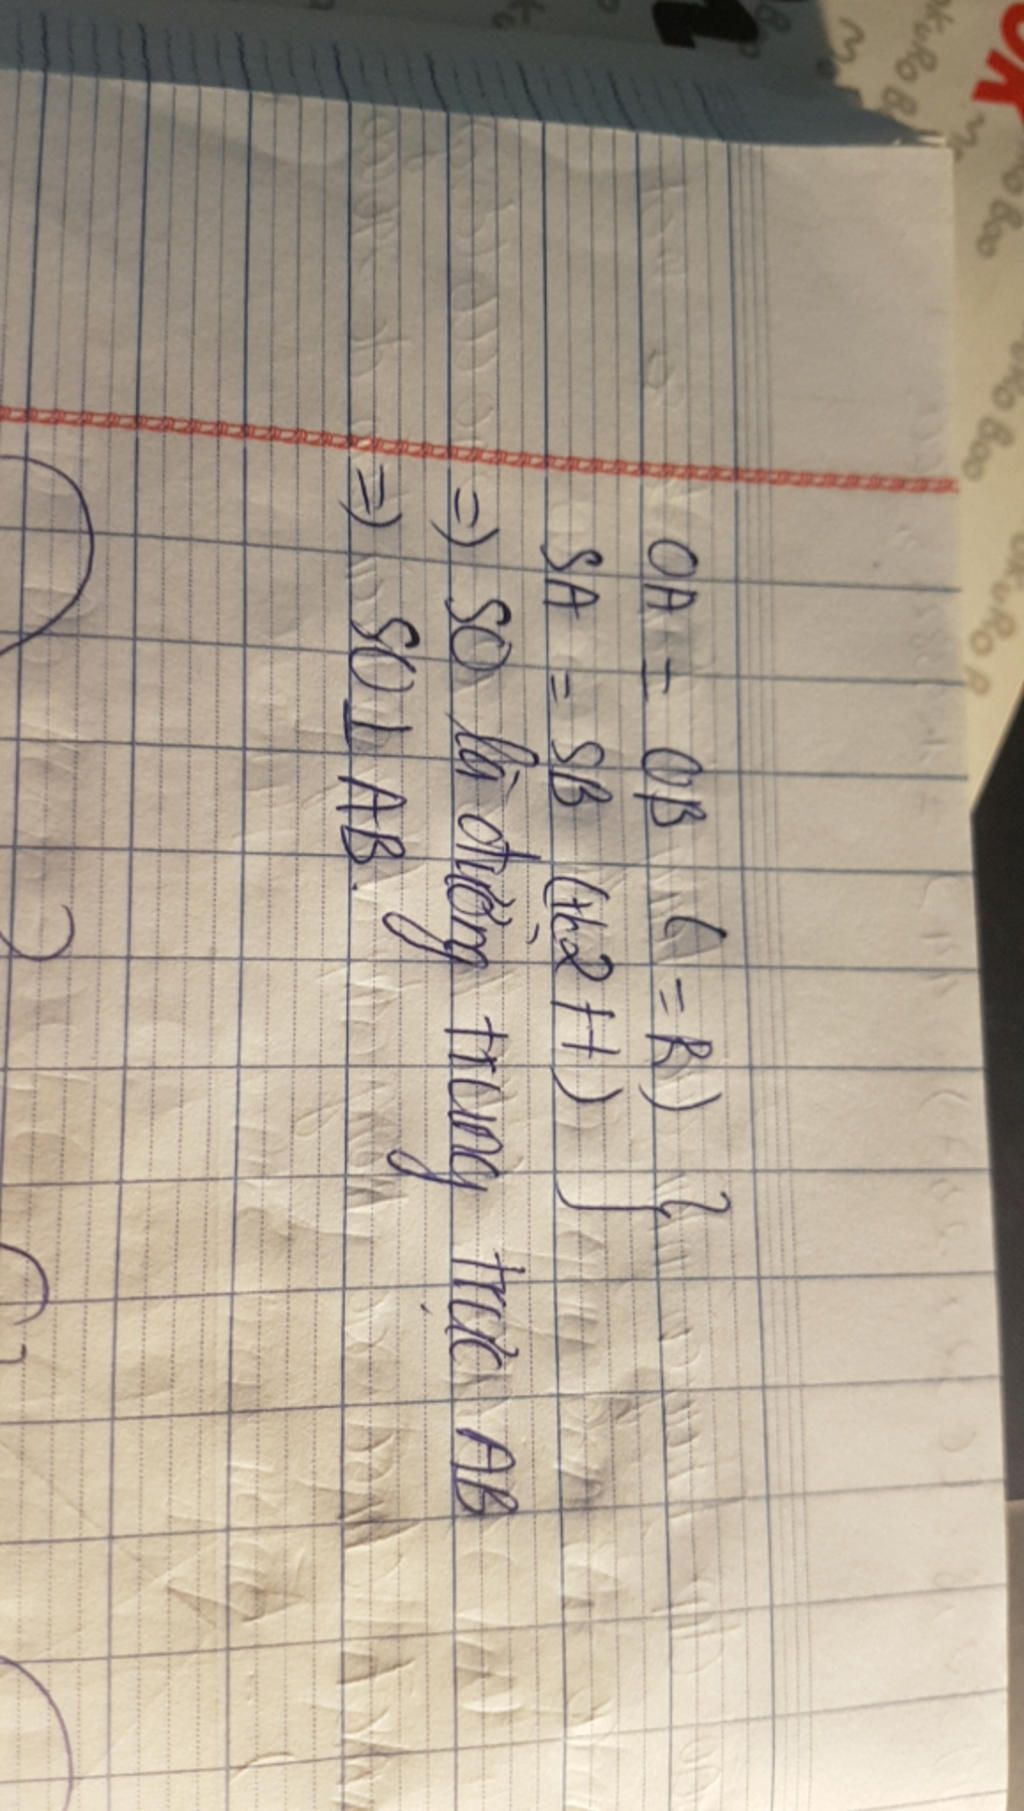 OA = OB (=R) }
SA = SB (tc 2 tt)
=) SO là đường trung trực AB
=) SO ⊥ AB.
KuRo Boo
KuRo B